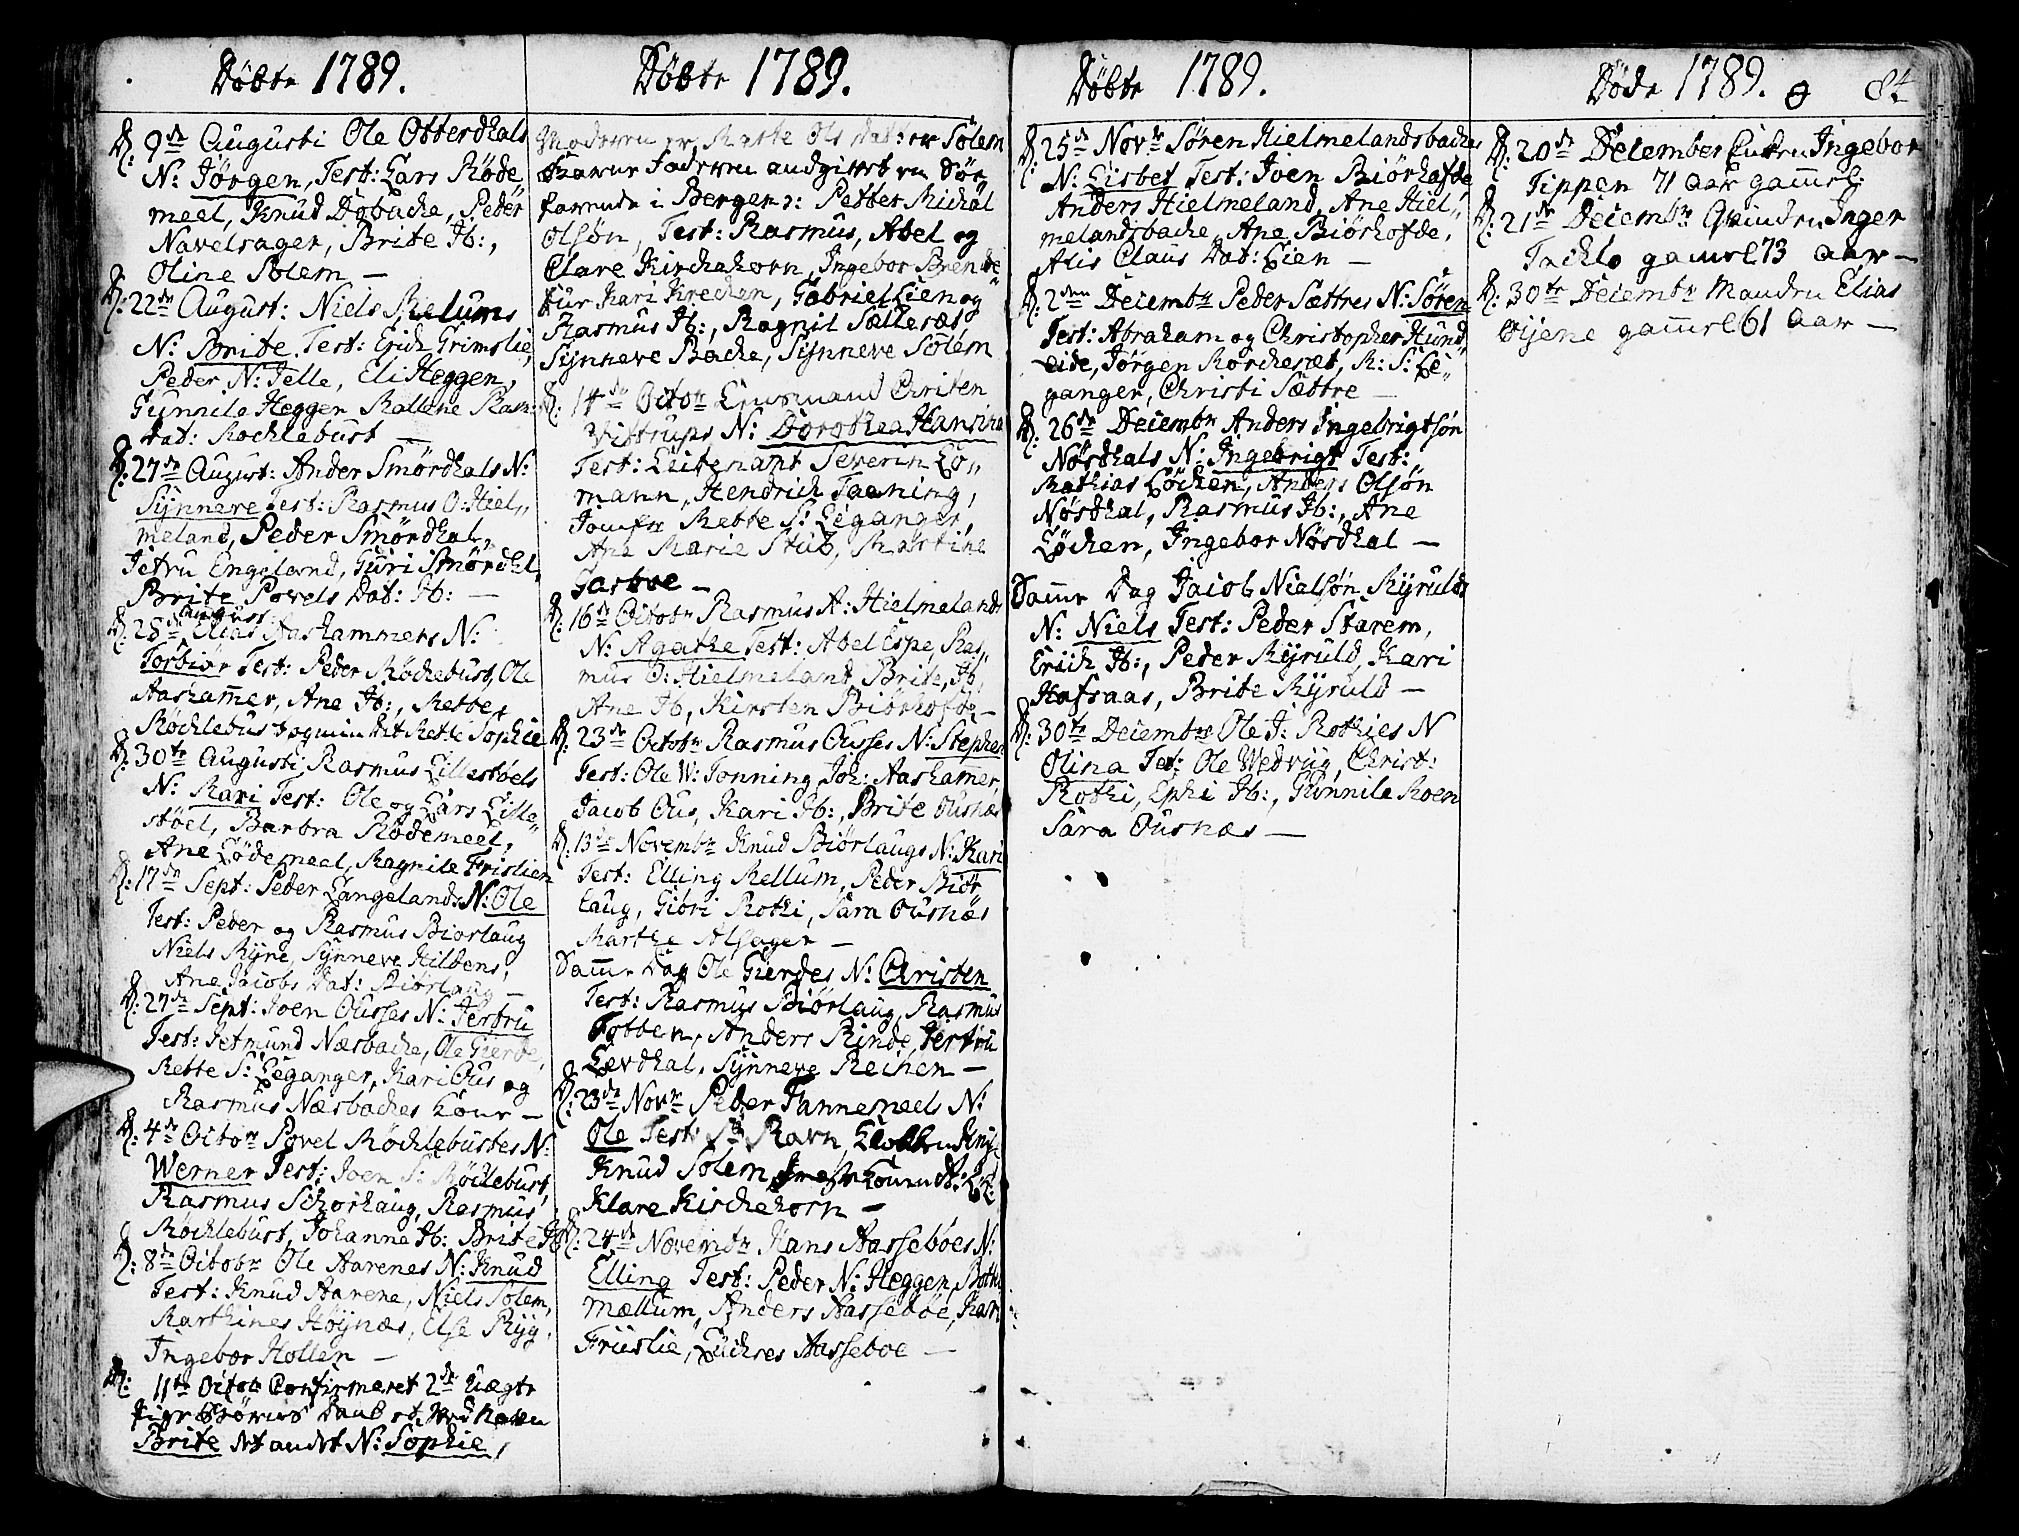 Döbte 1789.
D: 9de Augusti Ole Otterdhals
N: Jörgen, Test: Lars Röde
meel, Knud Dobache, Peder
Navelsager, Brite Ib:,
Oline Solem —
D: 22de August: Niels Melums
N: Brite, Test: Erich Grimslie,
Peder N: Telle, Eli Heggen,
Gunnile Heggen Mallene Rasm:
dat: Rochlebust —
D: 27de August: Ander Smördhals N:
Synneve Test: Rasmus O: Hiel„
meland, Peder Smördhal,
Jetru Engeland, Guri Smördhl,
Brite Povels Dat: Ib: —
August:
D: 28de Elias Aashammers N:
Torbiör Test: Peder Röchebust, Ole
Aashamer, Ane Ib:, Mette
Röchlebust og min Dat Mette Sophie
D: 30te Augusti Rasmus Lillestöels
N: Kari Test: Ole og Lars Lille„
stöel, Barbra Rödemeel,
Ane Lödemeel, Ragnile Frislien
D: 17de Sept: Peder Langelands N: Ole
Test: Peder og Rasmus Biorlaug
Niels Ryne, Synneve Hilbens,
Ane Jacobs Dat: Biörlaug —
D: 27de Sept: Joen Ousses N: Jertru
Test: Jetmund Næsbache, Ole Gierde,
Mette S: Leganger, Kari Ous og
Rasmus Næsbaches Kone —
D: 4de Octobr Povel Röchlebustes N:
Werner Test: Joen S: Röchlebust,
Rasmus Schorhaug, Rasmus
Röchlebust, Johanne Ib: Brite Ib
D: 8de Octobr Ole Aarenes N: Knud
Test: Knud Aarene, Niels Solem,
Marthines Höynæs, Else Ryg,
Ingebor Hollen —
D: 11te Octobr Confirmeret 2de uægte
Brite det andet N: Sophie,
Döbte 1789.
Moderen er Marte Ols dat: er Solem
farende i Bergen : Petter Michal
Olsøn, Test: Rasmus, Abel og
Clare Kirchehorn, Ingebor Brende
tür Kari Krechen, Gabriel Lien og
Rasmus Ib:, Ragnil Sætteræs,
Synneve Bache, Synneve Solem
D: 14de Octobr Christen
Vittrups N: Dorothea Hansine
Test: Luitenant Severin Lo„
mann, Hendrich Taening,
Jomfr Mette S: Leganger,
Ane Marie Stub, Martine
Gasboe —
D: 16de Octobr Rasmus A: Hielmelands
N: Agathe Test: Abel Espe, Ras„
mus O: Hielmeland, Brite, Ib,
Ane Ib, Kirsten Biörhofde —
D: 23de Octobr Rasmus Ousses N: Stephen
Test: Ole W: Tonning Joh: Aashamer,
Jacob Ous, Kari Ib:, Brite Ousnæs
D: 13de Novembr Knud Biörlaugs N: Kari
Test: Elling Mellum, Peder Biör„
laug, Giöri Rothi, Sara Ousnæs
Marthe Alsager —
Samme Dag Ole Gierdes N: Christen
Test: Rasmus Biörlaug, Rasmus
Tobben, Anders Rinde, Jertru
Lævdhal, Synneve Reihen —
D: 23de Novr Peder Tannemeels N:
Ole Test: Sr Ravn,
Knud Solem
Klare Kirchehorn —
D: 24de Novembr Hans Aasseböes N:
Elling Test: Peder N: Heggen, Bothl
Mællum, Anders Aasseböe, Kari
Friislie, Luchres Aasseboe —
Döbte 1789.
D: 25de Novbr Søren Hielmelandsbaches
N: Lisbet Test: Joen Biörhofde
Anders Hielmeland, Ane Hiel„
melandsbache, Ane Biörhofde,
Alis Claus Dat: Lien —
D: 2den Decembr Peder Sættres N: Sören
Test: Abraham og Christopher Hund„
eide, Jörgen Morcheset, M: S: Le„
ganger, Christi Sættre —
D: 26de Decembr Anders Ingebrigtsøn
Nösdhals N: Ingebrigt Test:
Mathias Löchen, Anders Olsøn
Nösdhal, Rasmus Ib:, Ane
Löchen, Ingebor Nösdhal —
Samme Dag Jacob Nielsøn Myrulds
N: Niels Test: Peder Starem,
Erich Ib:, Peder Myruld, Kari
Hafsaas, Brite Myruld —
D: 30te Decembr Ole J: Rothies N
Olina Test: Ole Wedvüg, Christ:
Rothi, Ephi Ib:, Gunnile Moen
Sara Ousnæs —
Döde 1789. 84
D: 20de December Enken Ingebor
Tippen 71 aar gammel:
D: 21de Decembr Qvinden Inger
Tachlo gamel 73 aar —
D: 30te Decembr Manden Elias
Öijene gammel 61 Aar —